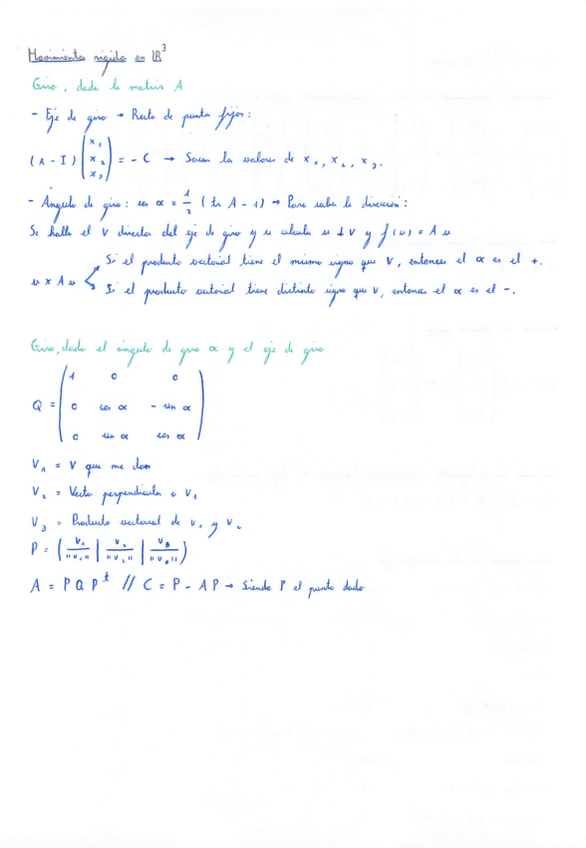 Movimientos rígidos en ℝ³
Giro, dada la matriz A
- Eje de giro → Recta de puntos fijos:
(A - I) (x₁ x₂ x₃) = - C → Sacar los valores de x₁, x₂, x₃.
- Ángulo de giro: cos α = 1/2 (tr A - 1) → Para saber la dirección:
Se halla el V director del eje de giro y se calcula u ⊥ V y f(u) = A u
Si el producto vectorial tiene el mismo signo que V, entonces el α es el +.
u x A u
Si el producto vectorial tiene distinto signo que V, entonces el α es el -.
Giro, dado el ángulo de giro α y el eje de giro
1 0 0
Q = 0 cos α - sen α
0 sen α cos α
V₁ = V que me dan
V₂ = Vector perpendicular a V₁
V₃ = Producto vectorial de V₁ y V₂
P = (V₁/"V₁" | V₂/"V₂" | V₃/"V₃")
A = P Q Pᵗ // C = P - A P → Siendo P el punto dado